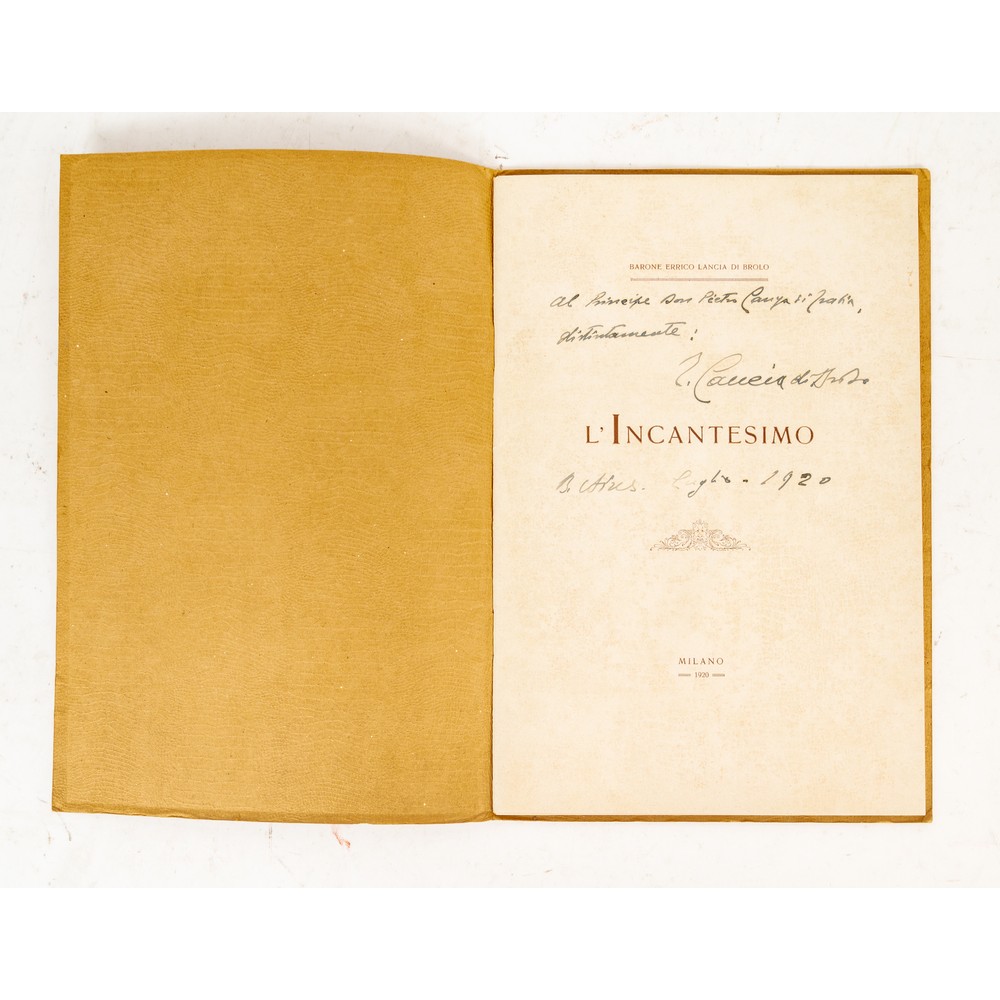 BARONE ERRICO LANCIA DI BROLO
Al Principe Don Pietro Lanza di
distintamente:
Lancia di Brolo
L'INCANTESIMO
B. Aires. Luglio - 1920
MILANO
1920